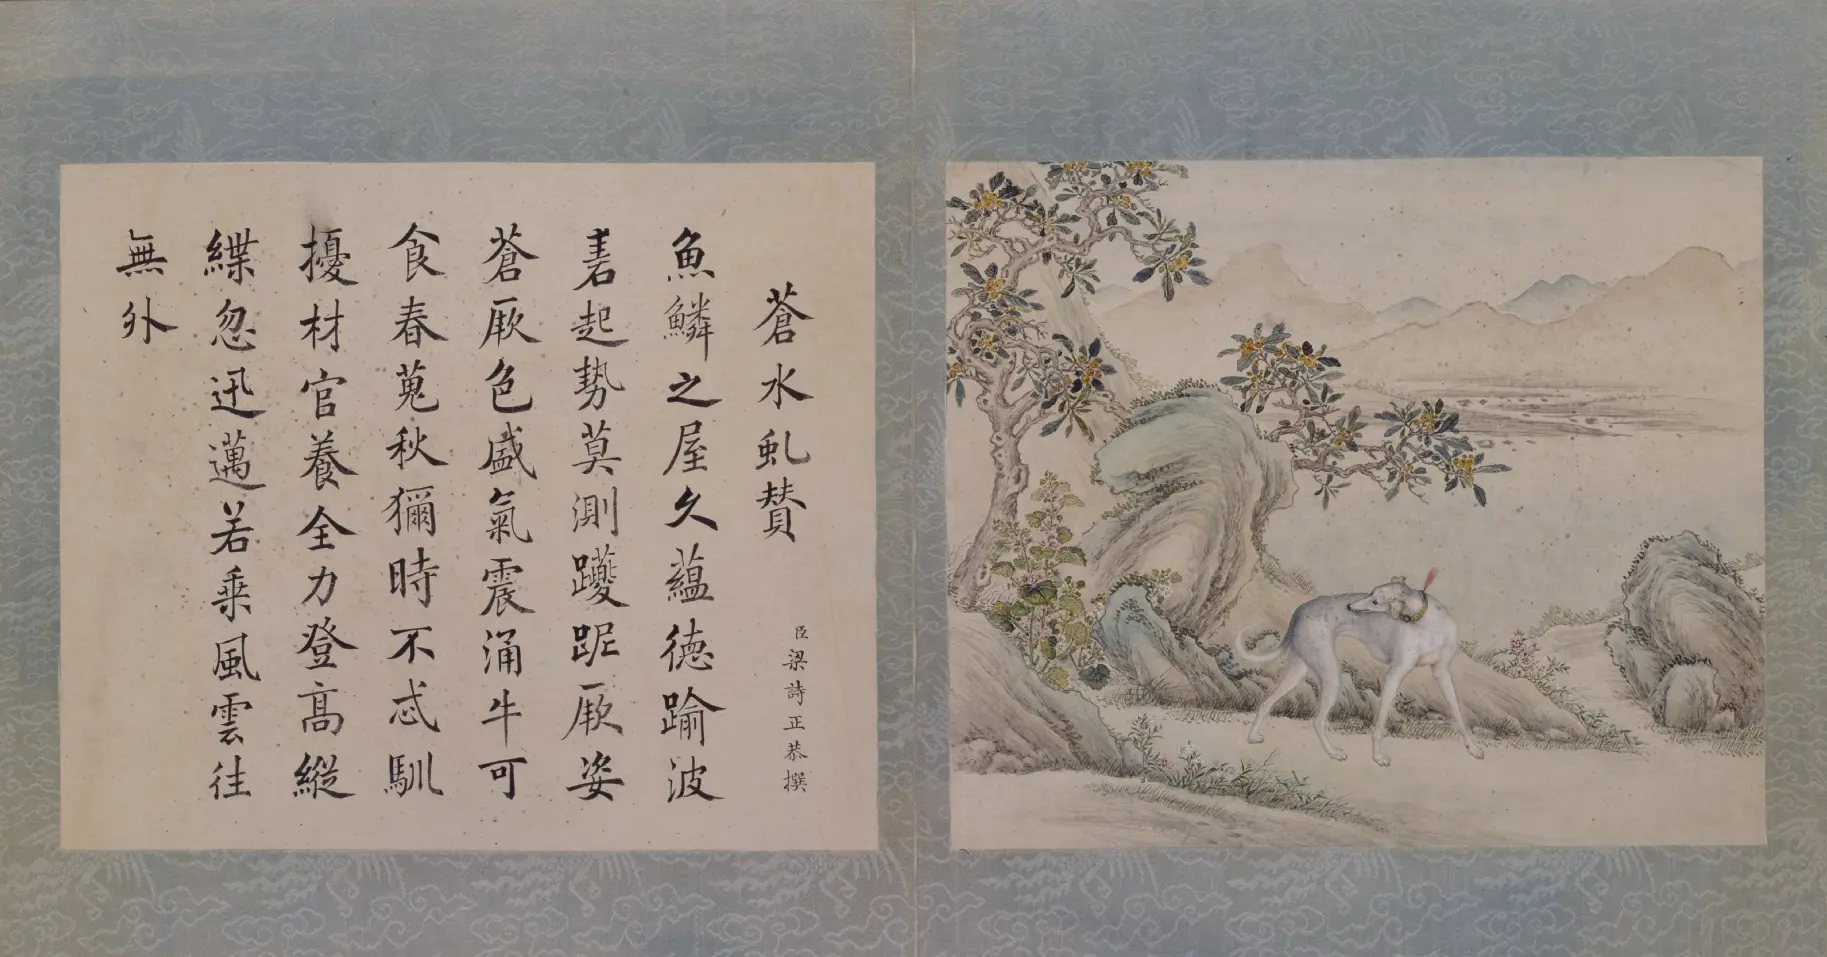 蒼水虬贊
臣梁詩正恭撰
魚鱗之屋久蘊德踰波
砉起勢莫測躨跜厥姿
蒼厥色盛氣震涌牛可
食春蒐秋獮時不忒馴
擾材官養全力登高縱
緤忽迅邁若乘風雲往
無外